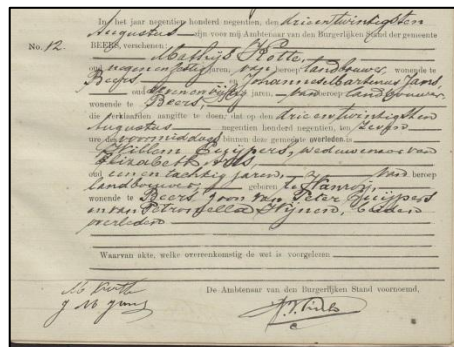 In het jaar negentien honderd negentien, den drieentwintigsten
Augustus zijn voor mij Ambtenaar van den Burgerlijken Stand der gemeente
No. 12.
BEERS, verschenen:
Mathijs Klotte,
oud negenenzestig jaren, van beroep landbouwer, wonende te
Beers en Johannes Martinus Jans,
oud jaren, van beroep landbouwer,
wonende te Beers,
die verklaarden aangifte te doen, dat op den drieentwintigsten
Augustus negentien honderd negentien, ten
ure des voormiddags binnen deze gemeente overleden is
Willem Cuijpers, weduwenaar van
Elizabeth
oud een en tachtig jaren, van beroep
landbouwer, geboren te Wanroij,
wonende te Beers, zoon van Peter Cuijpers
en van Petronella beiden
overleden
Waarvan akte, welke overeenkomstig de wet is voorgelezen
De Ambtenaar van den Burgerlijken Stand voornoemd,